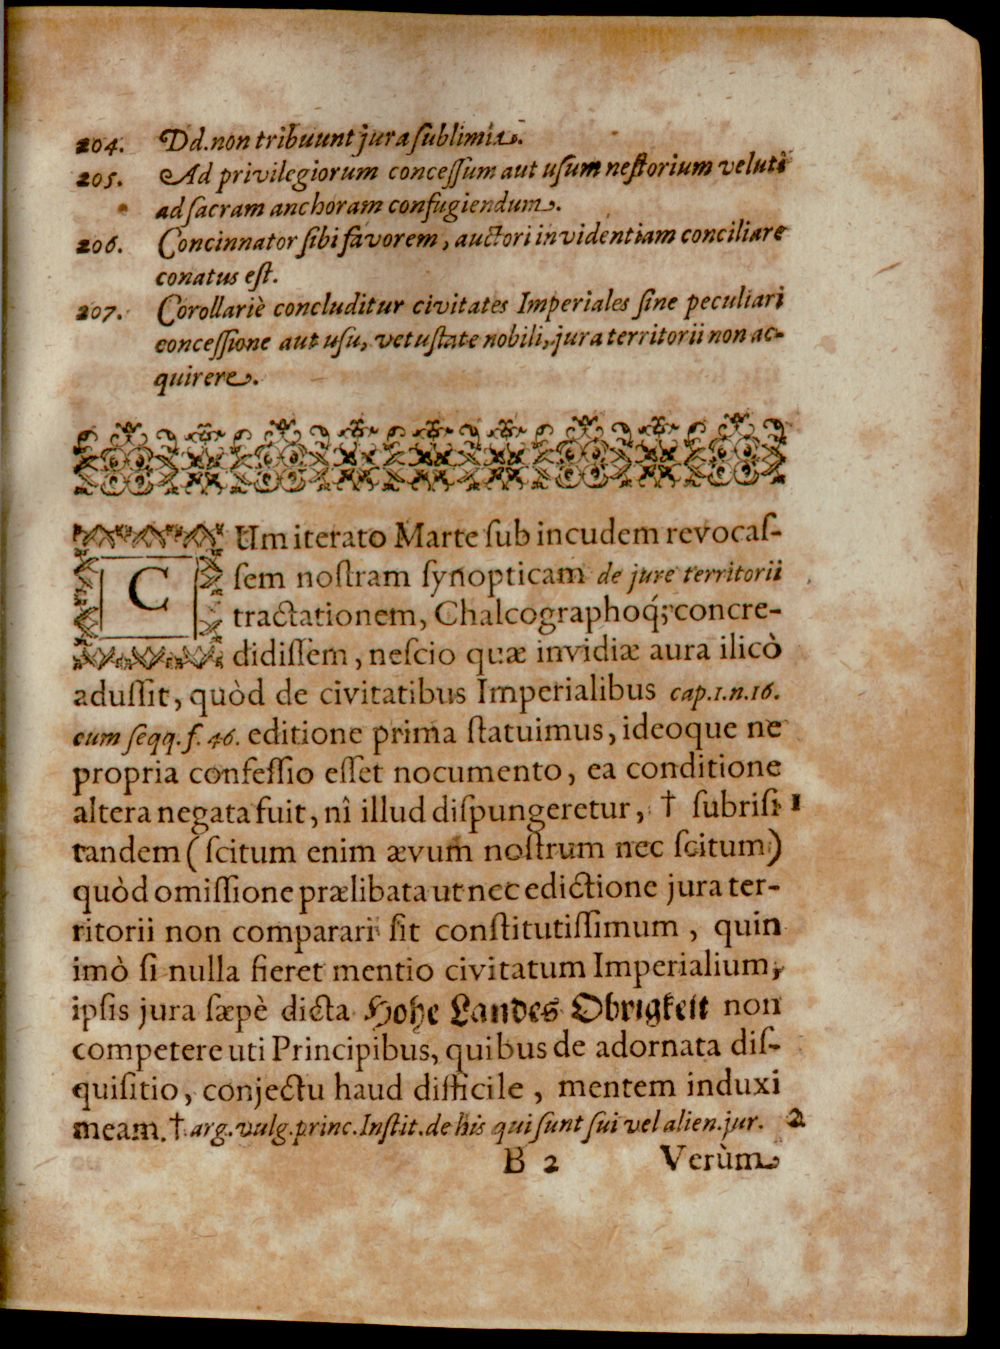 204. Dd. non tribuunt jura ſublimia.
205. Ad privilegiorum conceſſum aut uſum neſtorium veluti
ad ſacram anchoram confugiendum.
206. Concinnator ſibi favorem, auctori invidentiam conciliare
conatus eſt.
207. Corollariè concluditur civitates Imperiales ſine peculiari
conceſſione aut uſu, vetuſtate nobili, jura territorii non ac-
quirere.
CUm iterato Marte ſub incudem revocaſ-
ſem noſtram ſynopticam de jure territorii
tractationem, Chalcographoq́; concre-
didiſſem, neſcio quæ invidiæ aura ilicò
aduſſit, quòd de civitatibus Imperialibus cap. 1. n. 16.
cum ſeqq. f. 46. editione prima ſtatuimus, ideoque ne
propria confeſſio eſſet nocumento, ea conditione
altera negata fuit, nî illud diſpungeretur, † ſubriſi 1
tandem (ſcitum enim ævum noſtrum nec ſcitum)
quòd omiſſione prælibata ut nec edictione jura ter-
ritorii non comparari ſit conſtitutiſſimum, quin
imò ſi nulla fieret mentio civitatum Imperialium,
ipſis jura ſæpè dicta Hohe Landes Obrigkeit non
competere uti Principibus, quibus de adornata diſ-
quiſitio, conjectu haud difficile, mentem induxi
meam. † arg. vulg. princ. Inſtit. de his qui ſunt ſui vel alien. jur. 2
B 2 Verùm